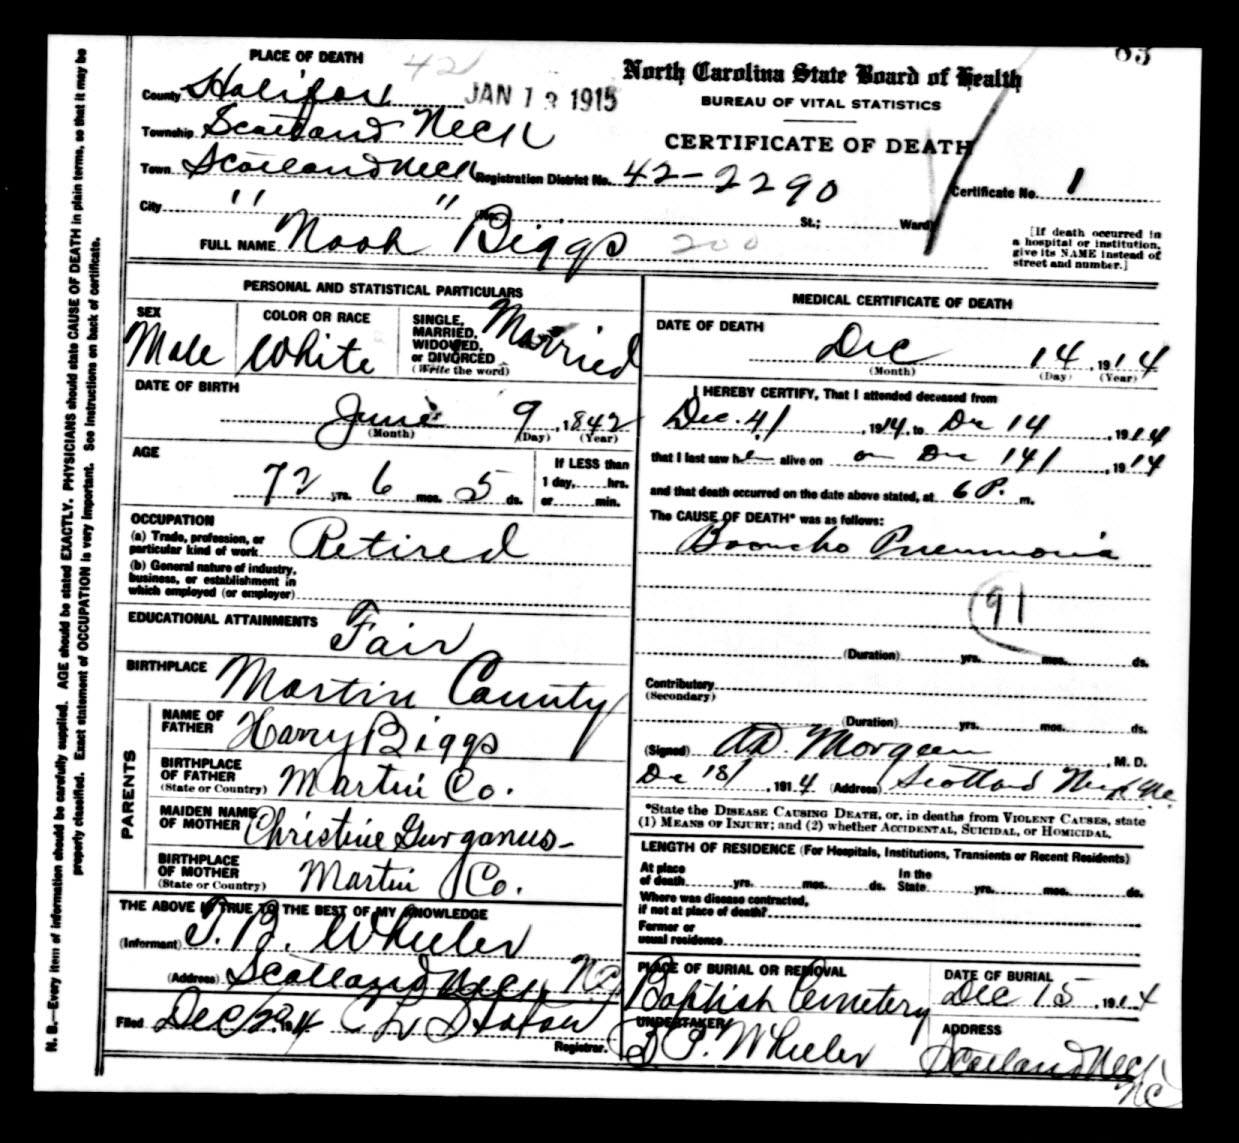 83
PLACE OF DEATH 42
County Halifax JAN 13 1915
North Carolina State Board of Health
BUREAU OF VITAL STATISTICS
CERTIFICATE OF DEATH
Township Scotland Neck
Town Scotland Neck Registration District No. 42-2290 Certificate No. 1
City " " (No. St.; Ward)
FULL NAME Noah Biggs 200
[If death occurred in
a hospital or institution,
give its NAME instead of
street and number.]
PERSONAL AND STATISTICAL PARTICULARS
SEX
Male
COLOR OR RACE
White
SINGLE,
MARRIED,
WIDOWED,
or DIVORCED
(Write the word)
Married
DATE OF BIRTH
June 9, 1842
(Month) (Day) (Year)
AGE
72 yrs. 6 mos. 5 ds.
If LESS than
1 day, hrs.
or min.
OCCUPATION
(a) Trade, profession, or
particular kind of work Retired
(b) General nature of industry,
business, or establishment in
which employed (or employer)
EDUCATIONAL ATTAINMENTS
Fair
BIRTHPLACE
Martin County
PARENTS
NAME OF
FATHER Harry Biggs
BIRTHPLACE
OF FATHER
(State or Country) Martin Co.
MAIDEN NAME
OF MOTHER Christine Gurganus
BIRTHPLACE
OF MOTHER
(State or Country) Martin Co.
THE ABOVE IS TRUE TO THE BEST OF MY KNOWLEDGE
(Informant) Wheeler
(Address) Scotland Neck, N.C.
Filed Dec 1914
Registrar.
MEDICAL CERTIFICATE OF DEATH
DATE OF DEATH
Dec 14, 1914
(Month) (Day) (Year)
I HEREBY CERTIFY, That I attended deceased from
Dec. 4/, 1914, to Dec 14, 1914
that I last saw h alive on on Dec 14/, 1914
and that death occurred on the date above stated, at 6 P. m.
The CAUSE OF DEATH* was as follows:
Broncho Pneumonia
91
(Duration) yrs. mos. ds.
Contributory
(Secondary)
(Duration) yrs. mos. ds.
(Signed) A.D. Morgan, M. D.
Dec, 1914 (Address) Scotland Neck NC.
*State the DISEASE CAUSING DEATH, or, in deaths from VIOLENT CAUSES, state
(1) MEANS OF INJURY; and (2) whether ACCIDENTAL, SUICIDAL, or HOMICIDAL.
LENGTH OF RESIDENCE (For Hospitals, Institutions, Transients or Recent Residents)
At place
of death yrs. mos. ds. In the
State yrs. mos. ds.
Where was disease contracted,
if not at place of death?
Former or
usual residence
PLACE OF BURIAL OR REMOVAL
Baptist Cemetery
DATE OF BURIAL
Dec 15, 1914
UNDERTAKER
Wheeler
ADDRESS
Scotland Neck
NC
N. B.—Every item of information should be carefully supplied. AGE should be stated EXACTLY. PHYSICIANS should state CAUSE OF DEATH in plain terms, so that it may be
properly classified. Exact statement of OCCUPATION is very important. See instructions on back of certificate.